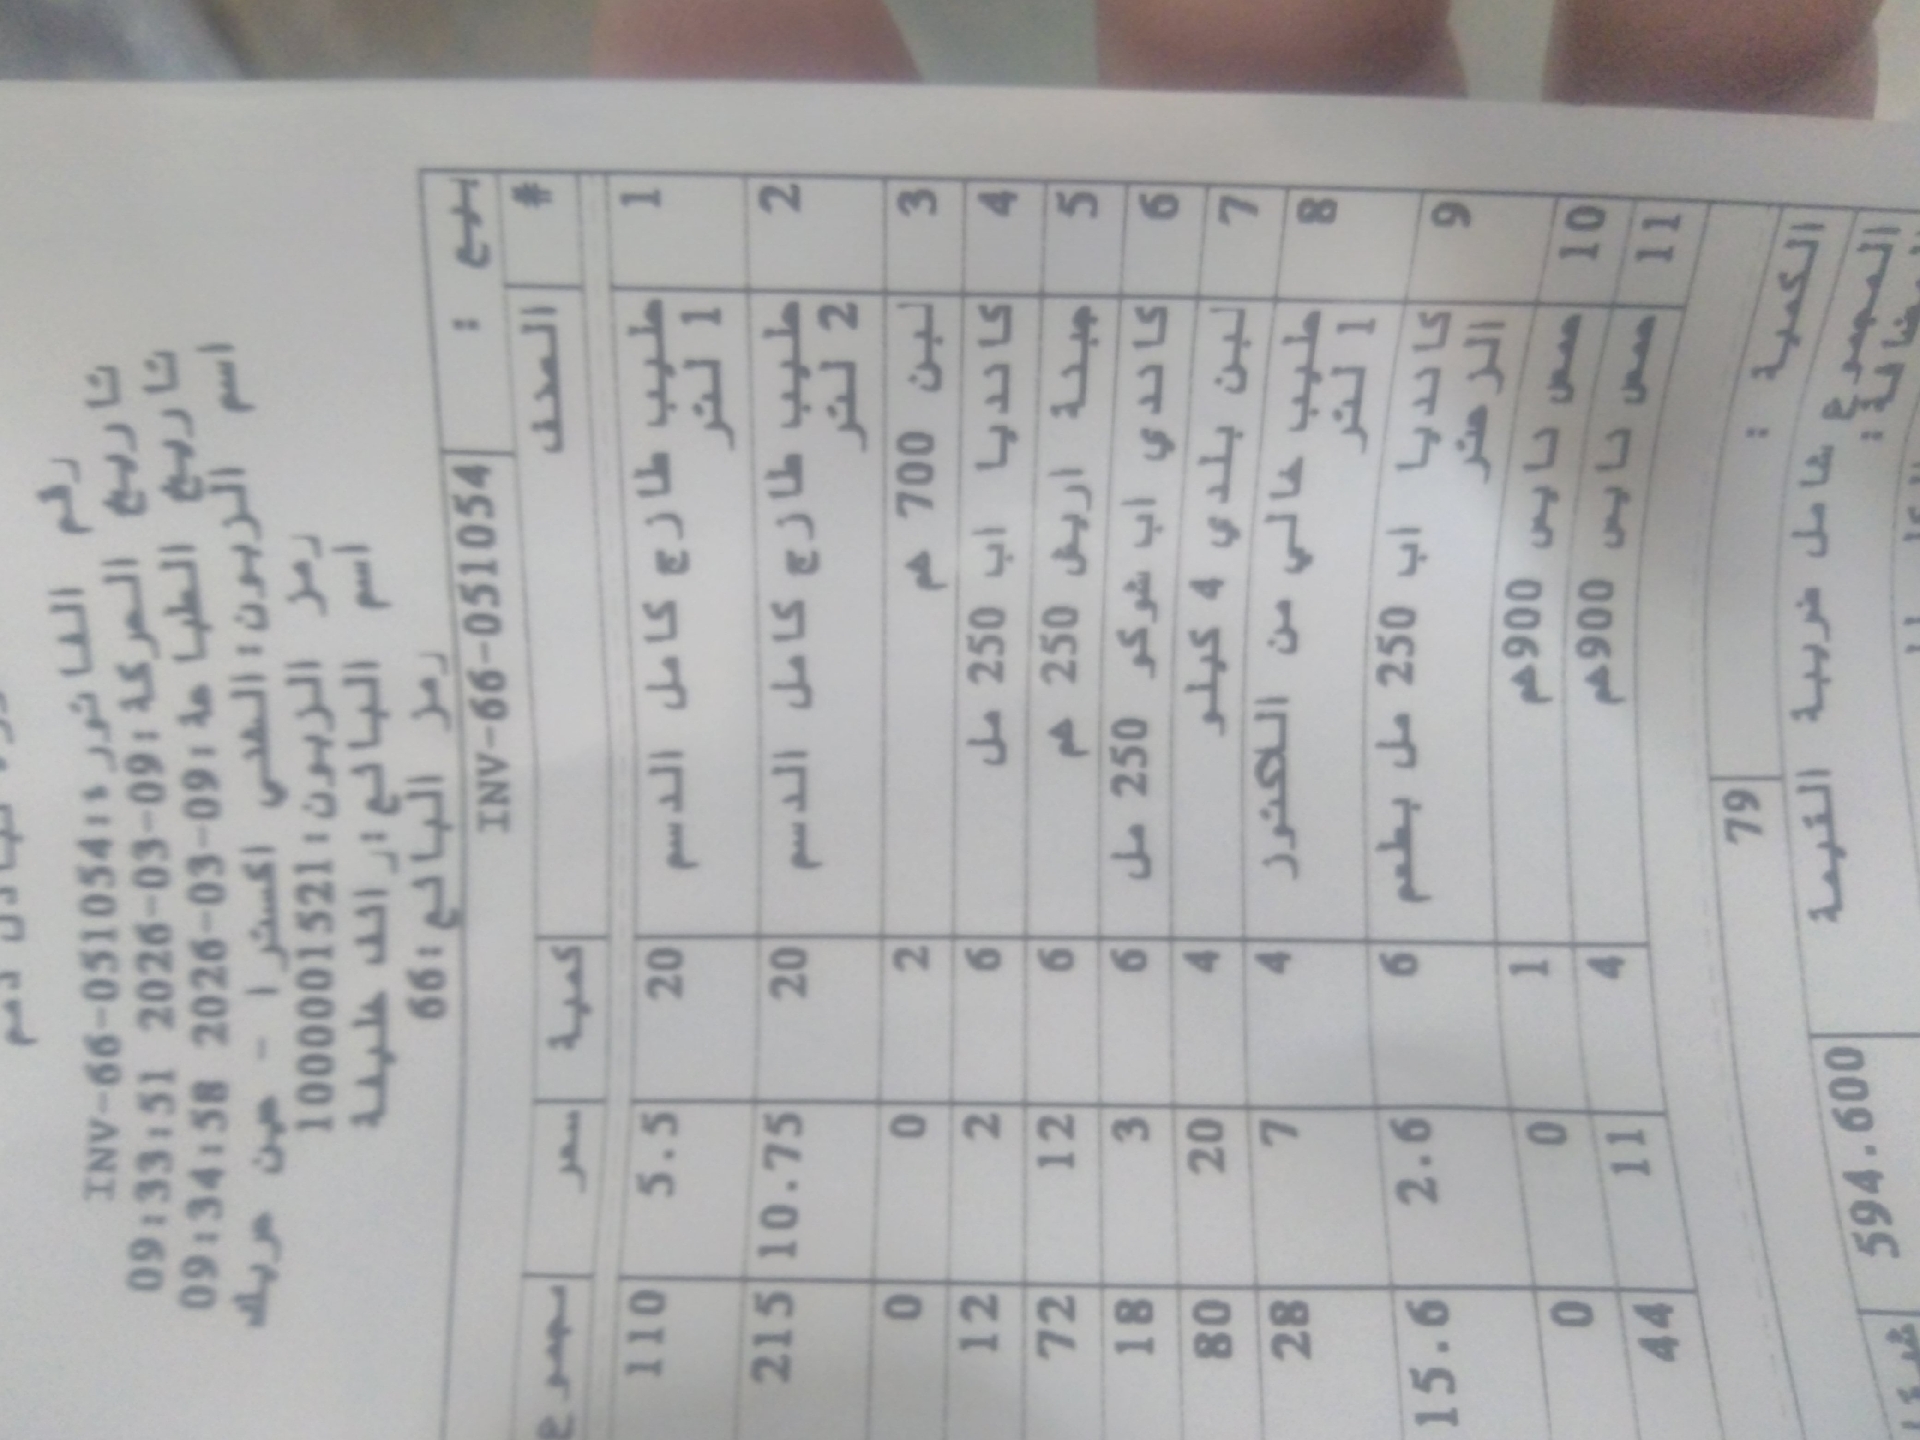 رقم الفاتورة: INV-66-051054
تاريخ الحركة: 2026-03-09 09:33:51
تاريخ الطباعة: 2026-03-09 09:34:58
اسم الزبون: القدس اكسترا - عين عريك
رمز الزبون: 1000001521
اسم البائع: رائف خليفة
رمز البائع: 66
بيع : INV-66-051054
# الصنف كمية سعر مجموع
1 حليب طازج كامل الدسم 20 5.5 110
1 لتر
2 حليب طازج كامل الدسم 20 10.75 215
2 لتر
3 لبن 700 غم 2 0 0
4 كانديا اب 250 مل 6 2 12
5 جبنة ابيض 250 غم 6 12 72
6 كاندي اب شوكو 250 مل 6 3 18
7 لبن بلدي 4 كيلو 4 20 80
8 حليب خالي من اللاكتوز 4 7 28
1 لتر
9 كانديا اب 250 مل بطعم 6 2.6 15.6
10 حمص نايس 900غم 1 0 0
11 حمص نايس 900غم 4 11 44
الكمية : 79
المجموع شامل ضريبة القيمة 594.600
المضافة: